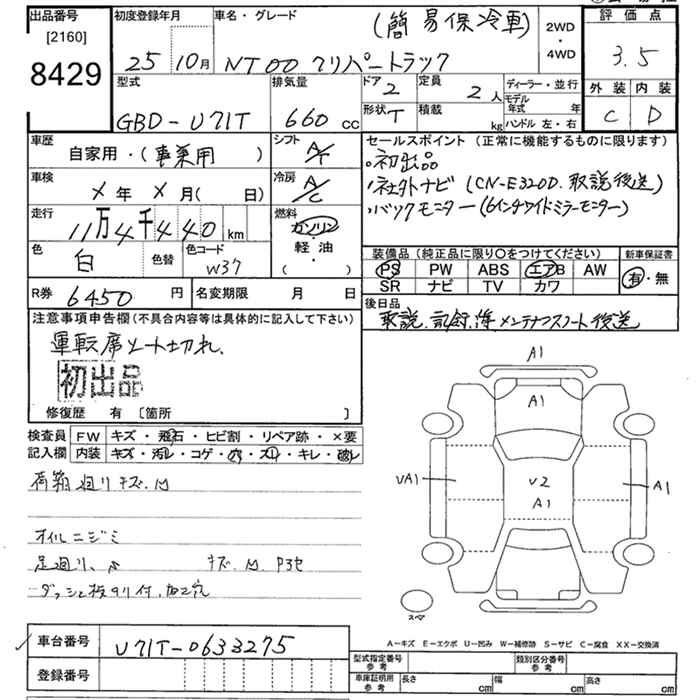 出品番号 初度登録年月 車名・グレード (簡易保冷車) 2WD ・ 4WD 評価点
[2160]
8429
25 10月 NT100 クリッパートラック 3.5
型式 排気量 ドア 2 定員 2人 ディーラー・並行 外装 内装
GBD-U71T 660cc 形状 T 積載 kg モデル年式 年 ハンドル 左・右 C D
車歴 自家用・(事業用) シフト A/T セールスポイント (正常に機能するものに限ります)
・初出品
車検 メ年 メ月( 日) 冷房 A/C ・社外ナビ (CN-E320D. 取説後送)
走行 11万4千440km 燃料 ガソリン・軽油・( ) ・バックモニター (6インチワイドミラーモニター)
色 白 色替 色コード W37
装備品 (純正品に限り〇をつけてください) 新車保証書
PS PW ABS エアB AW 有・無
SR ナビ TV カワ
R券 6450円 名変期限 月 日 後日品
取説.記録簿 メンテナンスノート後送
注意事項申告欄(不具合内容等は具体的に記入して下さい)
運転席シート切れ.
初出品
修復歴 有 [箇所 ]
検査員記入欄 FW キズ・飛石・ヒビ割・リペア跡・×要
内装 キズ・汚レ・コゲ・穴・スレ・キレ・破レ
オイルニジミ
A1
A1
U2
A1
UA1
A1
スペア
A-キズ E-エクボ U-凹み W-補修跡 S-サビ C-腐食 XX-交換済
車台番号 U71T-0633275
登録番号
型式指定番号 参考 類別区分番号 参考
車庫証明用 参考 長さ cm 幅 cm 高さ cm